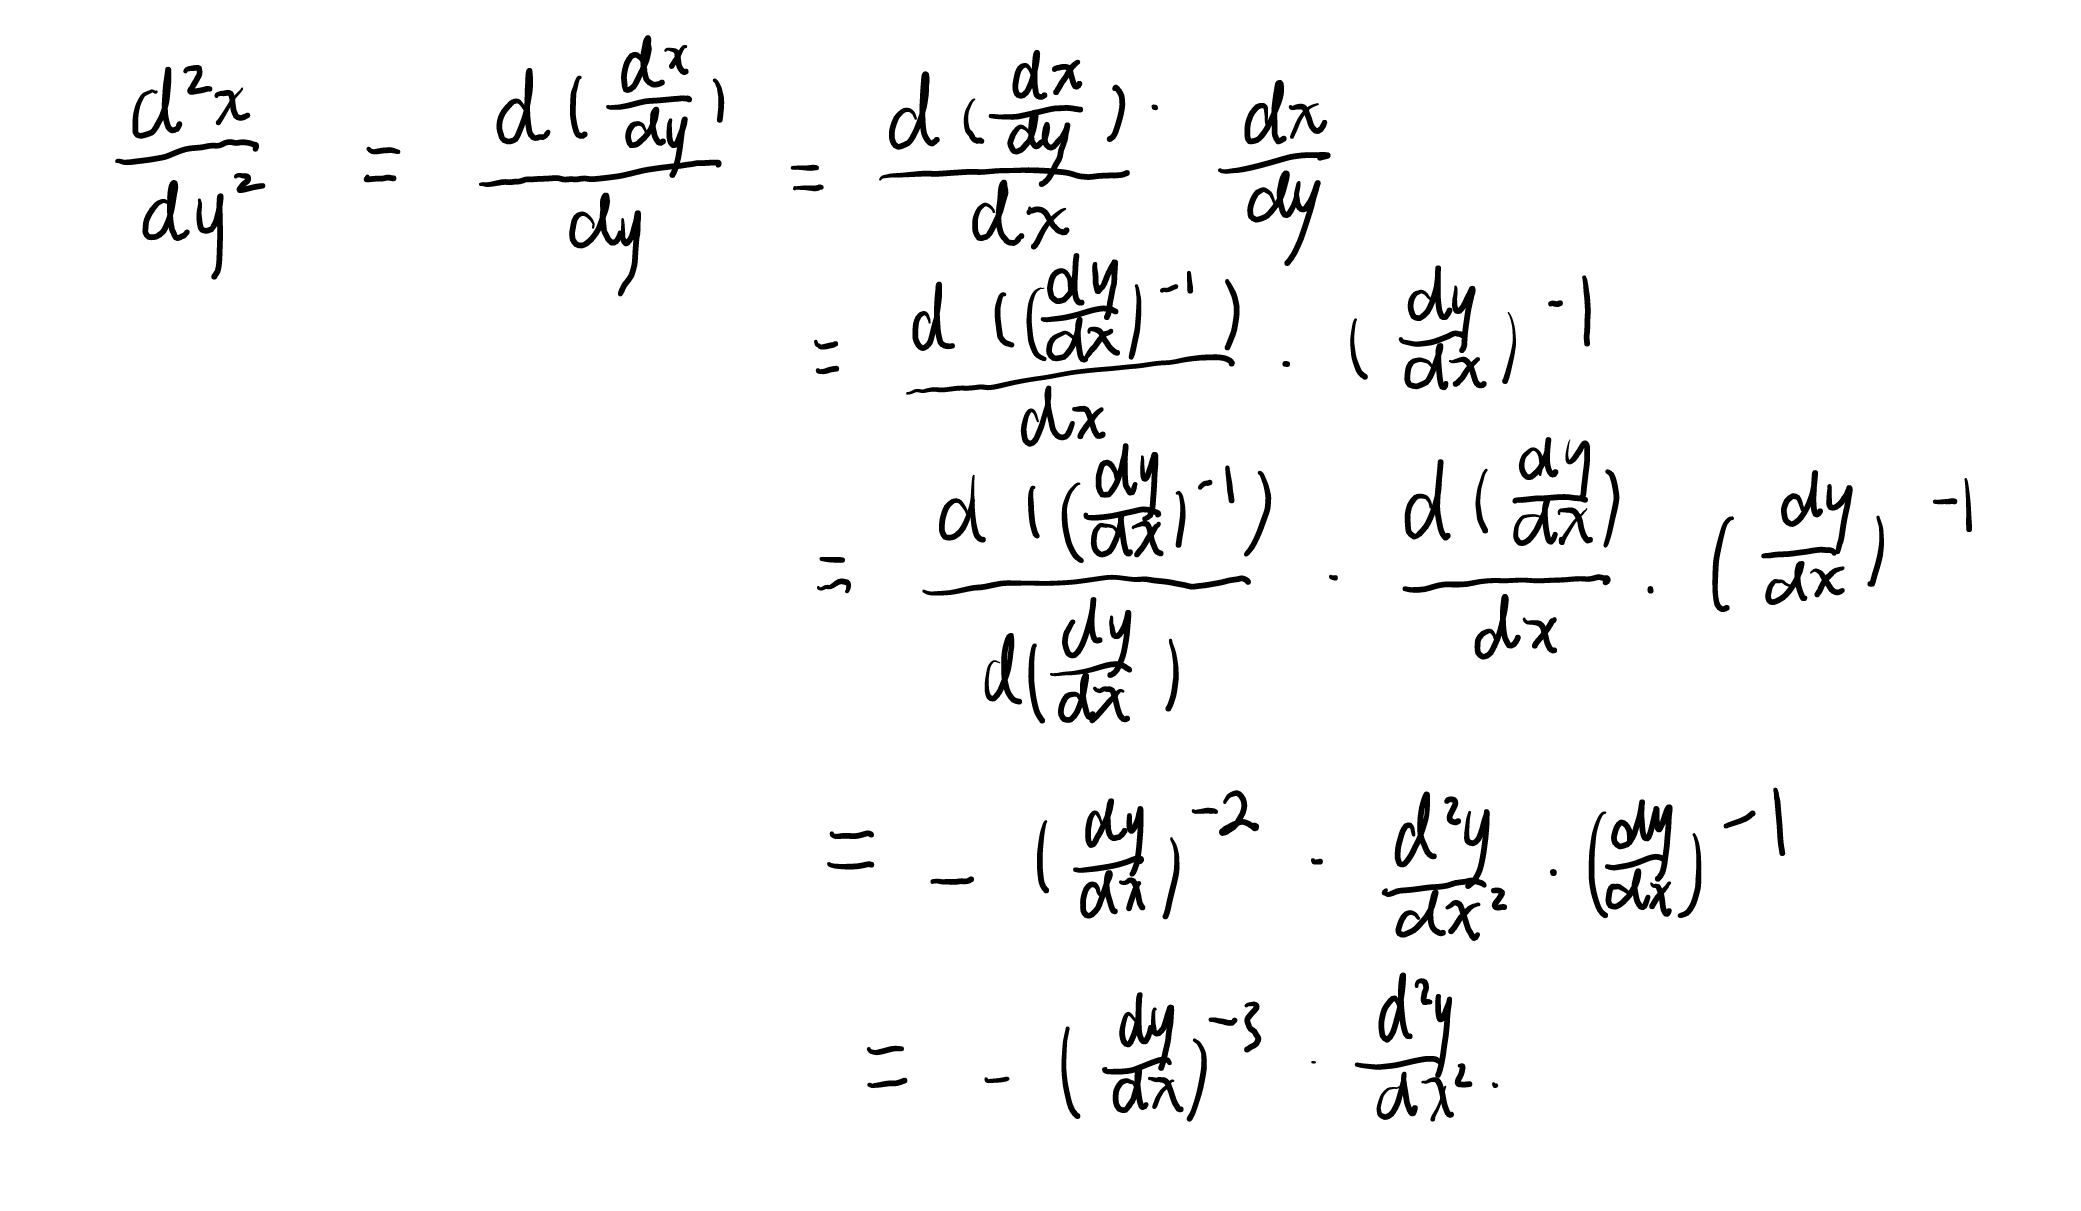 d²x/dy² = d(dx/dy)/dy = d(dx/dy)/dx · dx/dy
= d((dy/dx)⁻¹)/dx · (dy/dx)⁻¹
= d((dy/dx)⁻¹)/d(dy/dx) · d(dy/dx)/dx · (dy/dx)⁻¹
= - (dy/dx)⁻² · d²y/dx² · (dy/dx)⁻¹
= - (dy/dx)⁻³ · d²y/dx².